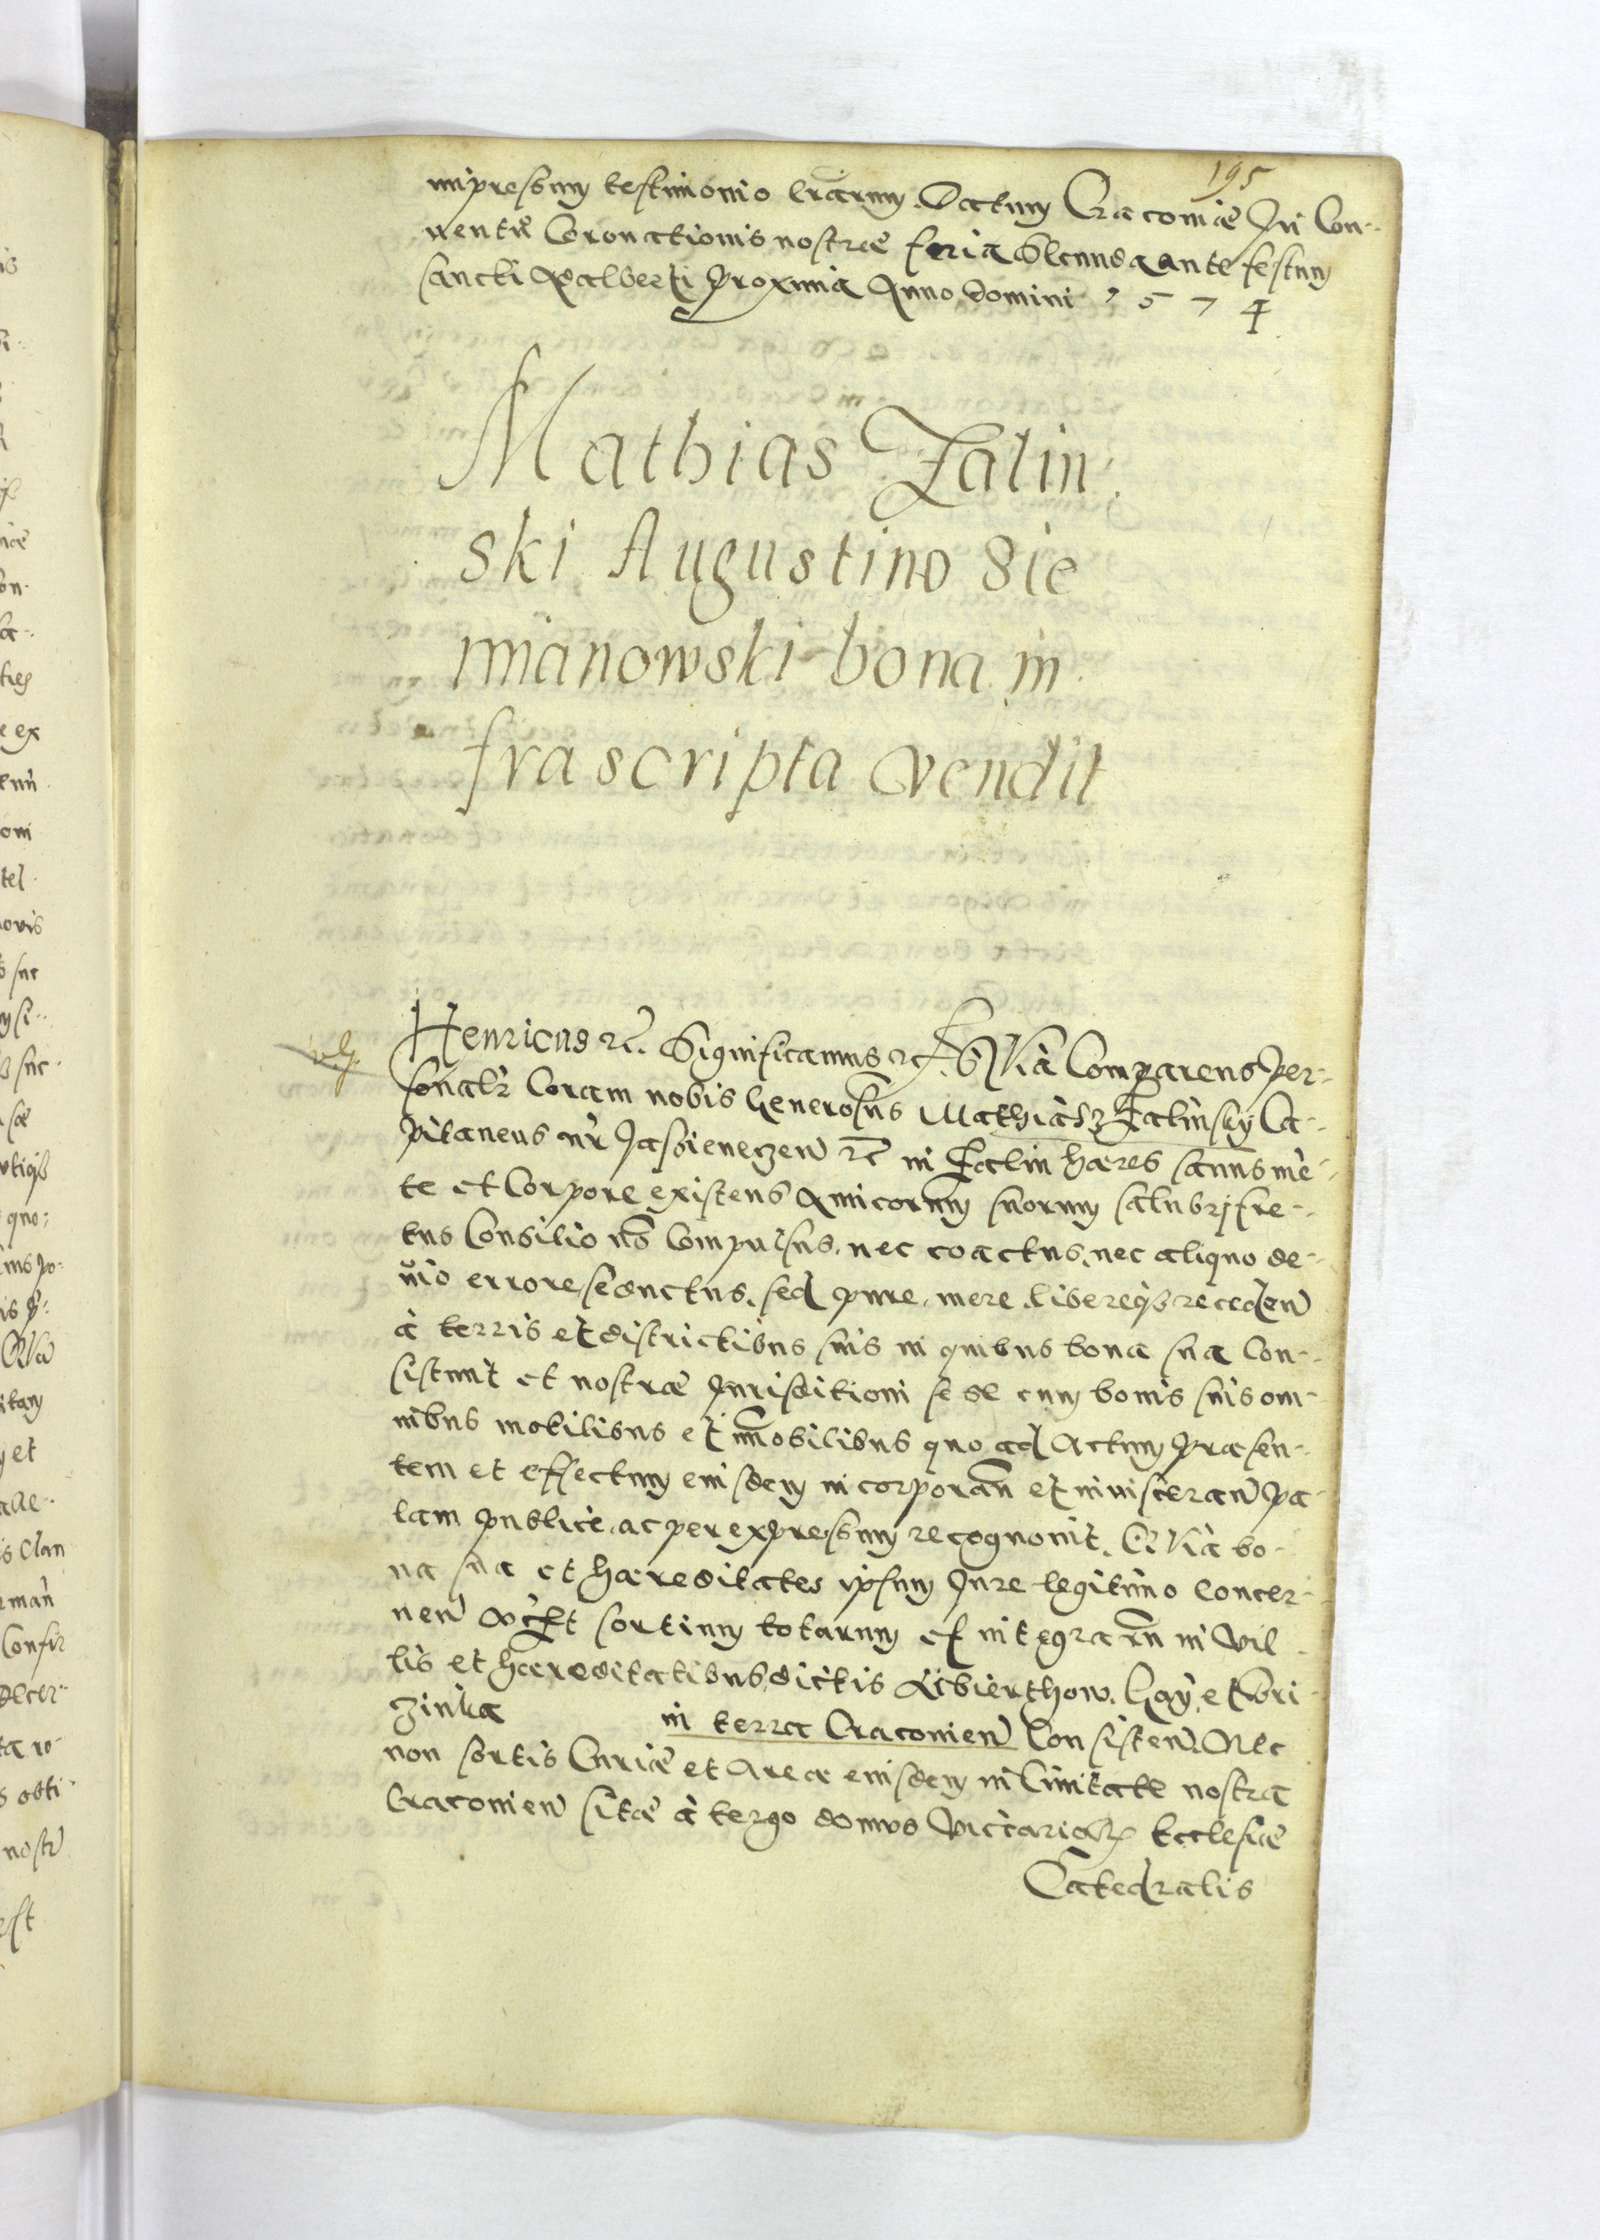 195
impressum testimonio lrarum. Datum Cracoviæ In Con-
ventu Coronationis nostræ feria secunda ante festum
sancti Adalberti proxima Anno domini 1574
Mathias Zalin
ski Augustino Sie
mianowski bona in
frascripta vendit
Henricus rc. Significamus rc. Quia Comparens per-
sonalr Coram nobis Generosus Mathiasz Zalinsky Ca-
pitaneus nr Jasieneczen rc in Zalin hæres sanus mẽ-
te et Corpore existens Amicorum suorum salubri fre-
tus Consilio nõ Compulsus, nec coactus, nec aliquo de-
vio errore seductus, sed pure, mere, libereq receden
à terris et districtibus suis in quibus bona sua Con-
sistunt et nostræ Jurisditioni se de cum bonis suis om-
nibus mobilibus et immobilibus quo ad Actum præsen-
tem et effectum eiusdem incorporan et inisceran pa-
lam publice, ac per expressum recognovit. Quia bo-
na sua et hæreditates ipsum Jure legitimo concer-
nen sortium totarum et integrarũ in Vil-
lis et hæreditatibus, dictis Libierthow, Gay, et Bri-
zinka in terra Cracovien Consisten. Nec
non sortis Curiæ et Areæ eiusdem in Civitate nostra
Cracovien sitæ à tergo domus Vicariorum Ecclesiæ
Catedralis